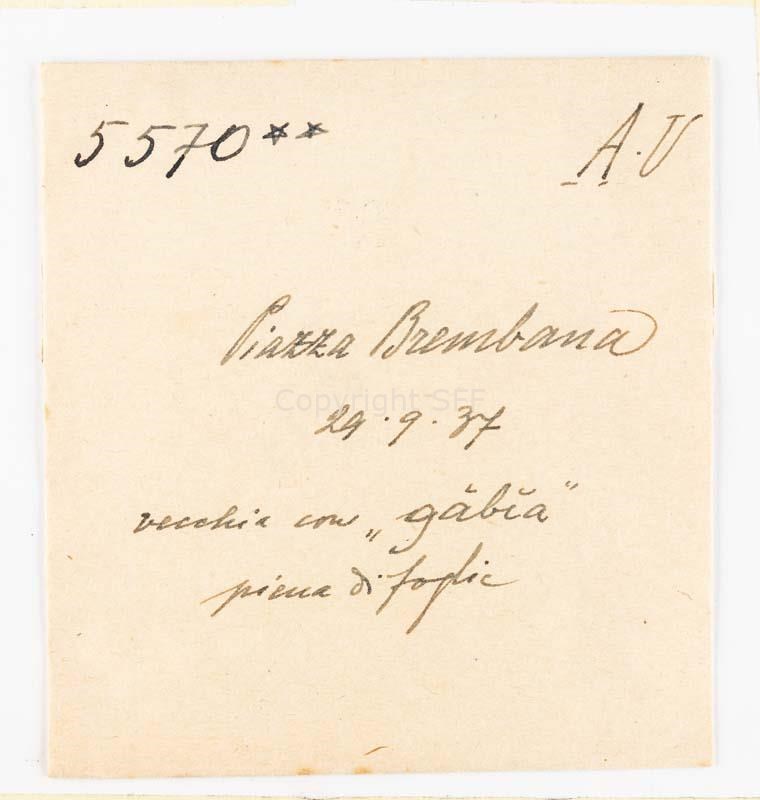 5570** A.U
Piazza Brembana
Copyright SFF
29.9.37
vecchia con „găbĭă"
piena di foglie